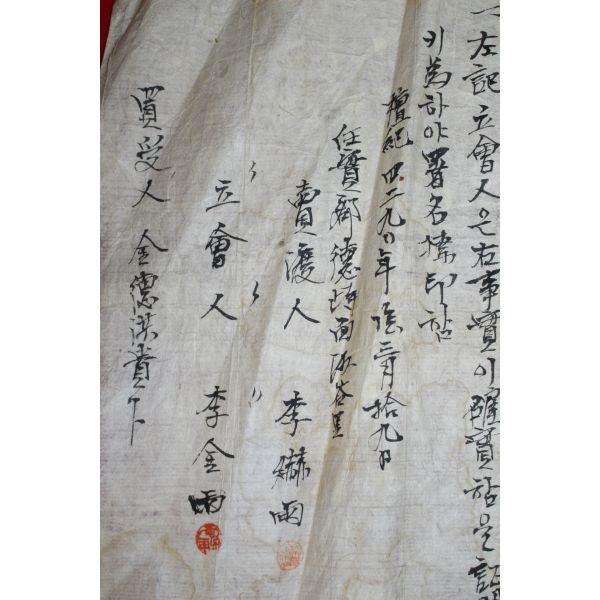 一 左記 立會人은 右事實이 確實함을 証明
키 爲하야 署名捺印함
檀紀 四二九〇年 陰 二月 拾九日
任實郡 德峙面
賣渡人 李 雨
〃 〃 〃
立會人 李金雨
買受人 金德洪 貴下